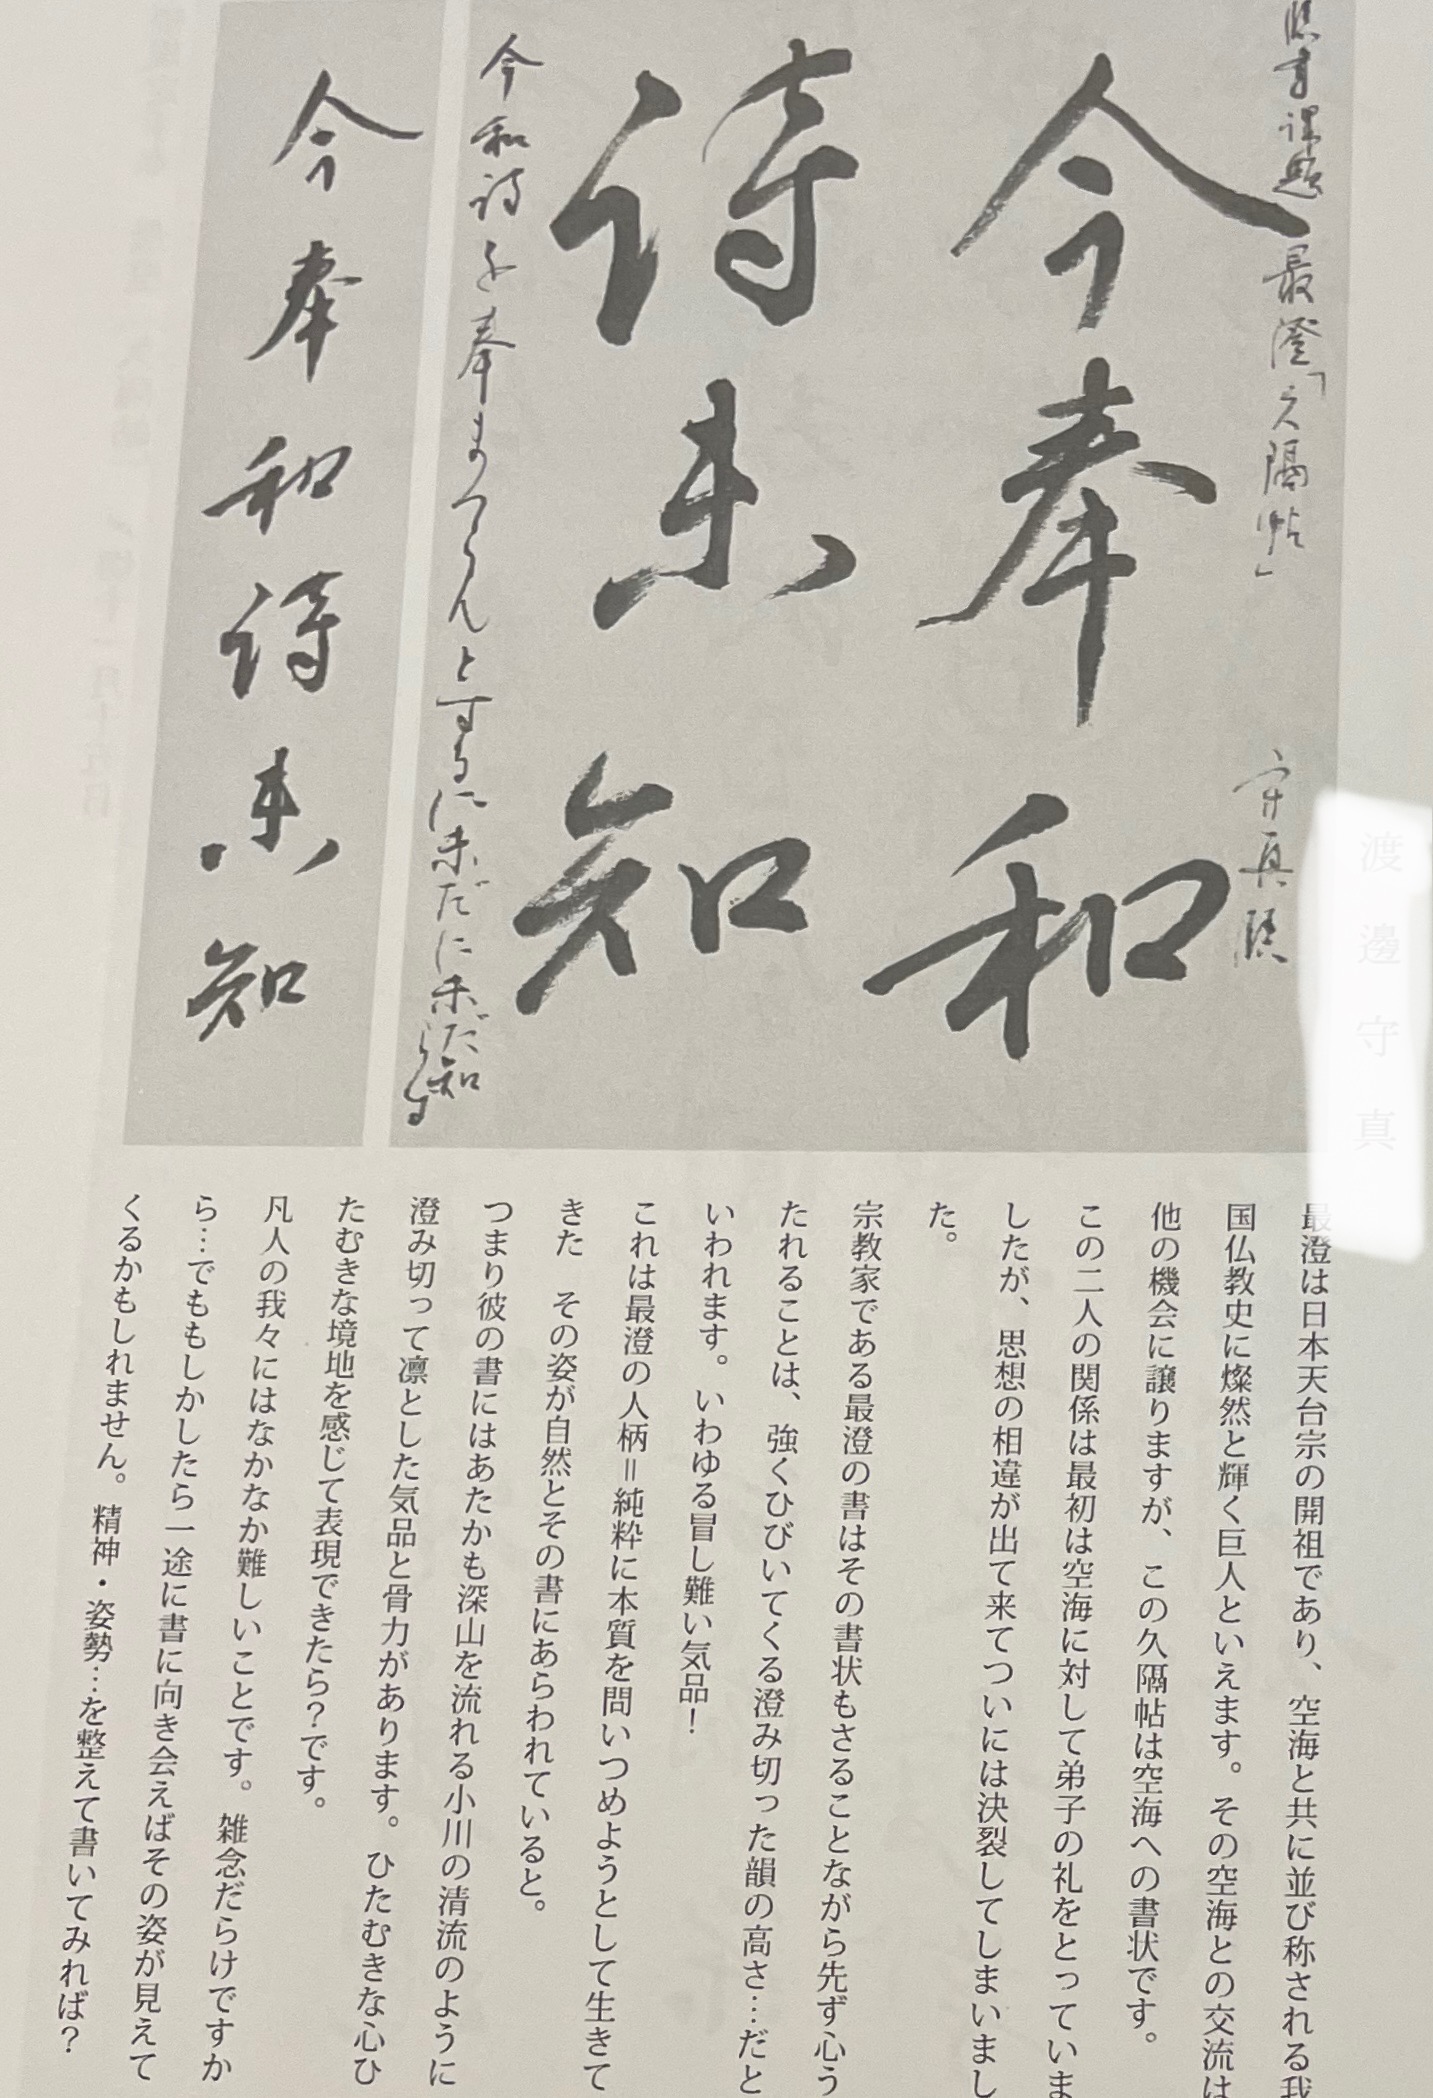 臨書課題 最澄「久隔帖」 守真臨
今奉和
詩未知
今和詩を奉まつらんとするに未だに未だ知らず
今奉和詩未知
渡邊守真
最澄は日本天台宗の開祖であり、空海と共に並び称される我
国仏教史に燦然と輝く巨人といえます。その空海との交流は
他の機会に譲りますが、この久隔帖は空海への書状です。
この二人の関係は最初は空海に対して弟子の礼をとっていま
したが、思想の相違が出て来てついには決裂してしまいまし
た。
宗教家である最澄の書はその書状もさることながら先ず心う
たれることは、強くひびいてくる澄み切った韻の高さ…だと
いわれます。いわゆる冒し難い気品！
これは最澄の人柄＝純粋に本質を問いつめようとして生きて
きた　その姿が自然とその書にあらわれていると。
つまり彼の書にはあたかも深山を流れる小川の清流のように
澄み切って凛とした気品と骨力があります。ひたむきな心ひ
たむきな境地を感じて表現できたら？です。
凡人の我々にはなかなか難しいことです。雑念だらけですか
ら…でももしかしたら一途に書に向き会えばその姿が見えて
くるかもしれません。精神・姿勢…を整えて書いてみれば？